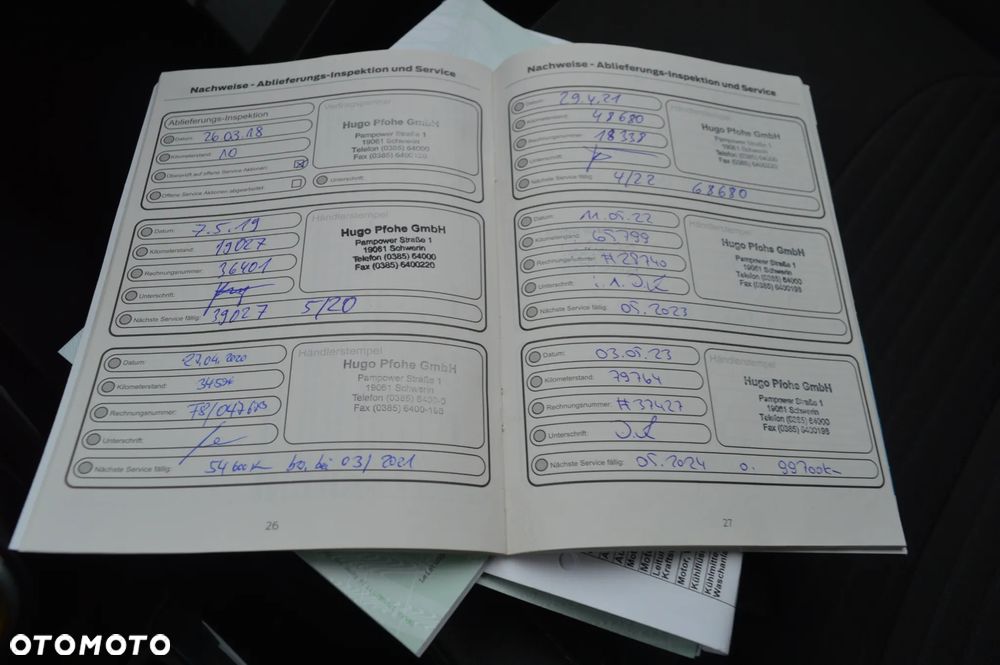 Nachweise - Ablieferungs-Inspektion und Service
Ablieferungs-Inspektion
Datum: 26.03.18
Kilometerstand: 10
Überprüft auf offene Service Aktionen:
Offene Service Aktionen abgearbeitet
Vertragspartner
Hugo Pfohe GmbH
Pampower Straße 1
19061 Schwerin
Telefon (0385) 64000
Unterschrift:
Datum: 7.5.19
Kilometerstand: 19027
Rechnungsnummer: 36401
Unterschrift:
Nächste Service fällig: 39027 5/20
Händlerstempel
Hugo Pfohe GmbH
Pampower Straße 1
19061 Schwerin
Telefon (0385) 64000
Fax (0385) 6400220
Datum: 27.04.2020
Kilometerstand:
Rechnungsnummer:
Unterschrift:
Nächste Service fällig: 03/2021
Händlerstempel
Hugo Pfohe GmbH
Pampower Straße 1
19061 Schwerin
Telefon (0385) 6400-0
Fax (0385) 6400-198
26
Nachweise - Ablieferungs-Inspektion und Service
Datum: 29.4.21
Kilometerstand: 48680
Rechnungsnummer: 18338
Unterschrift:
Nächste Service fällig: 4/22 68680
Hugo Pfohe GmbH
Pampower Straße 1
19061 Schwerin
Datum: 11.05.22
Kilometerstand: 65799
Rechnungsnummer: #28740
Unterschrift:
Nächste Service fällig: 05.2023
Händlerstempel
Hugo Pfohe GmbH
Pampower Straße 1
19061 Schwerin
Telefon (0385) 64000
Fax (0385) 6400198
Datum: 03.05.23
Kilometerstand: 79764
Rechnungsnummer: #37427
Unterschrift:
Nächste Service fällig: 05.2024 o. 99700km
Händlerstempel
Hugo Pfohe GmbH
Pampower Straße 1
19061 Schwerin
Telefon (0385) 64000
Fax (0385) 6400198
27
Motor,
Kühlmitte
Waschanle
OTOMOTO